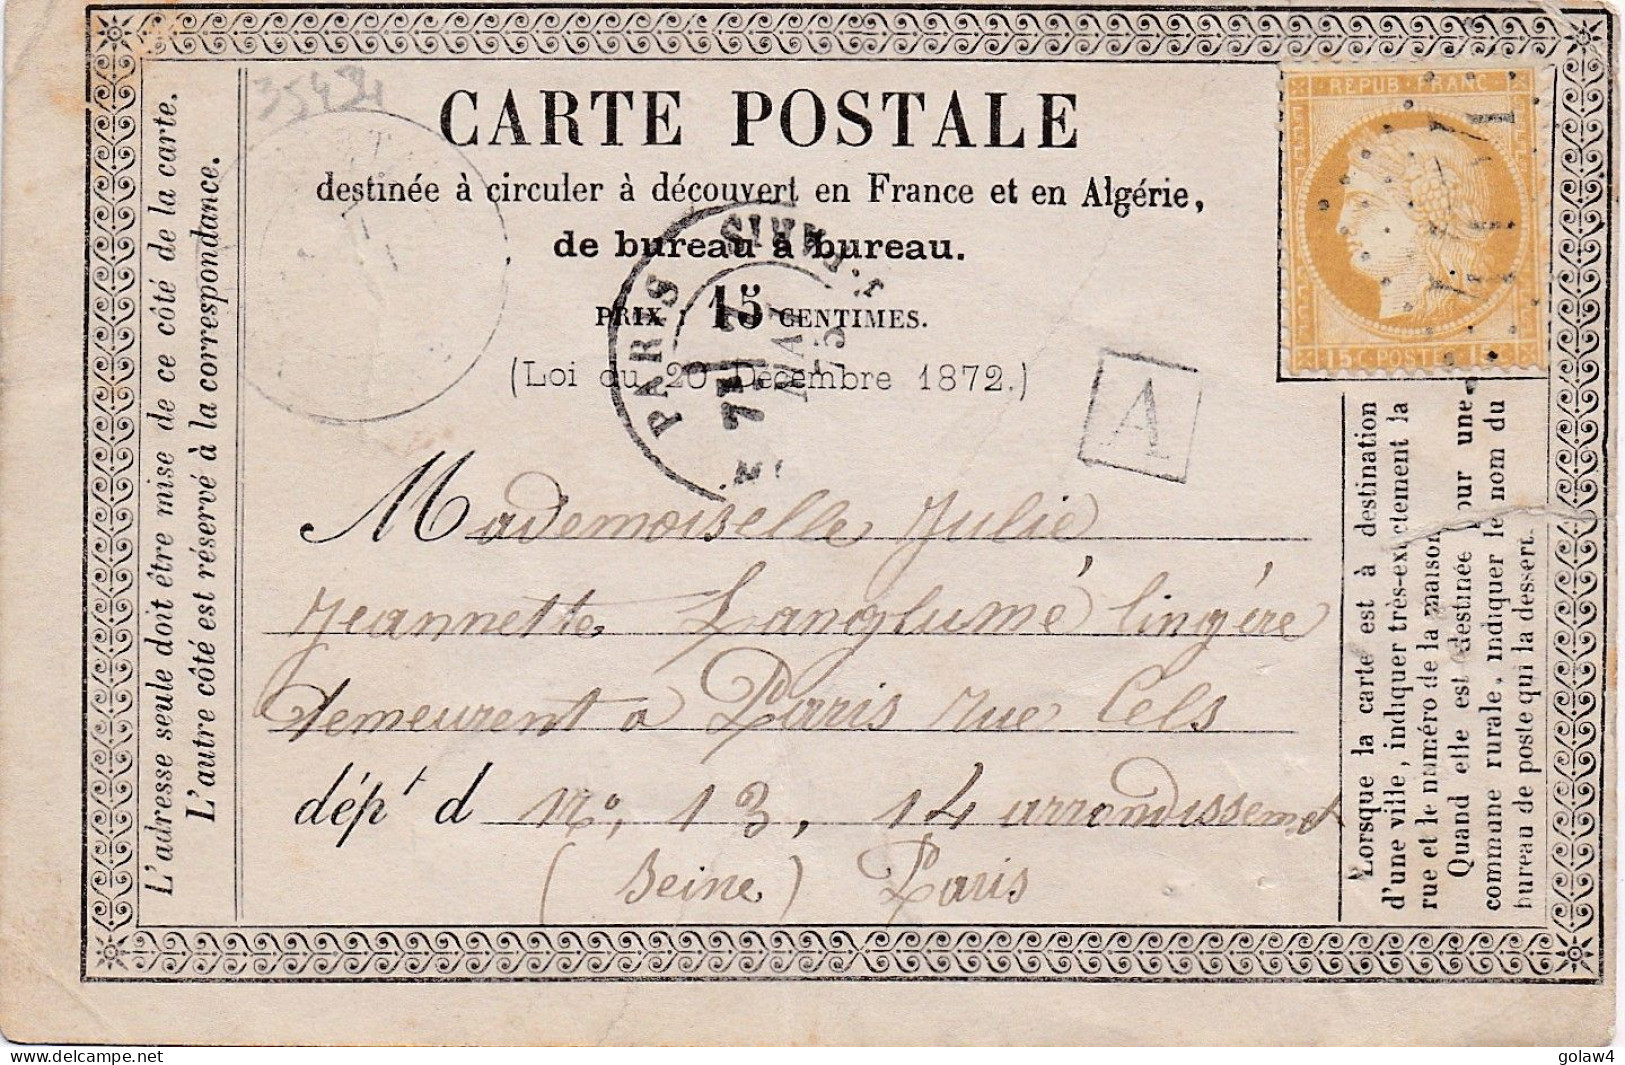 35434
CARTE POSTALE
destinée à circuler à découvert en France et en Algérie,
de bureau à bureau.
PRIX : 15 CENTIMES.
(Loi du 20 Décembre 1872.)
REPUB FRANC
15 C POSTES 15 C
PARIS
PARIS
7E
MAI
75
A
Mademoiselle Julie
Jeannette Langlumé lingère
demeurent a Paris rue Cels
dépt d no, 13, 14 arrondissement
(Seine) Paris
L'adresse seule doit être mise de ce côté de la carte.
L'autre côté est réservé à la correspondance.
Lorsque la carte est à destination
d'une ville, indiquer très-exactement la
rue et le numéro de la maison
Quand elle est destinée pour une
commune rurale, indiquer le nom du
bureau de poste qui la dessert.
golaw4